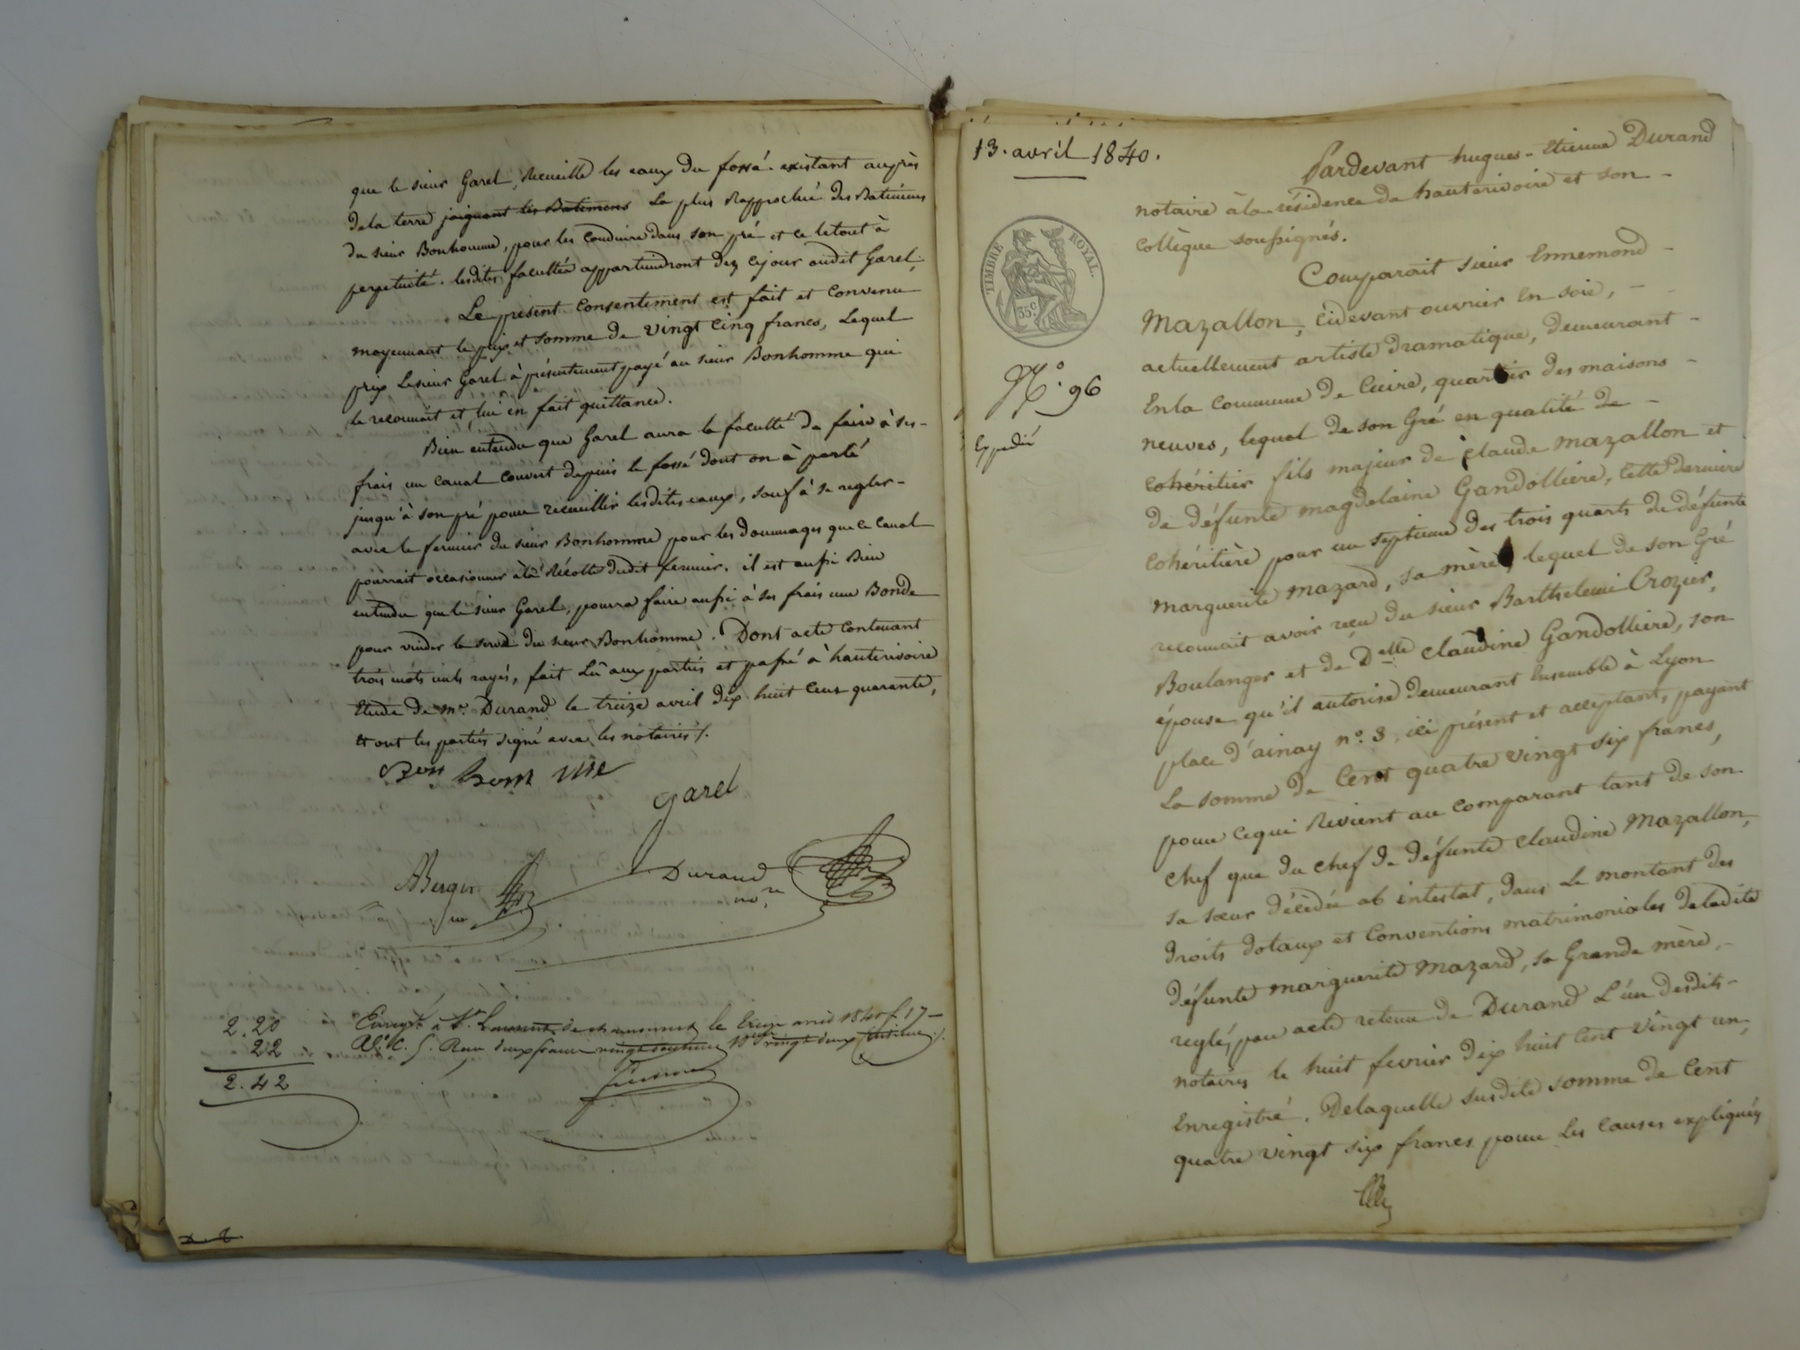 que le sieur Garel, Recueille les eaux du fossé existant auprès
de la terre joignant les Batimens La plus Rapprochée des Batimens
du sieur Bonhomme, pour les conduire dans son pré et ce letout à
perpetuité. lesdites facultés appartiendront dez cejour audit Garel;
Le présent consentement est fait et convenu
moyennant le prix et somme de vingt cinq francs, Lequel
prix Lesieur Garel à présentement payé au sieur Bonhomme qui
le reconnait et lui en fait quittance.
Bien entendu que Garel aura la faculté de faire à ses-
frais un canal couvert depuis le fossé dont on à parlé
jusqu'à son pré pour recueillir lesdites eaux, sauf à se regler-
avec le fermier du sieur Bonhomme pour les dommages que le canal
pourrait occasionner à la Récolte dudit fermier. il est aussi Bien
entendu que le sieur Garel, pourra faire aussi à ses frais une Bonde
pour vuider le serve du sieur Bonhomme. Dont acte contenant
trois mots nuls rayés, fait Lu aux parties et passé à hauterivoire
Etude de Me. Durand le treize avril dix huit cent quarante,
et ont les parties signé avec les notaires /.
Bon homme
garel
ABerger
Durand
no.re
2.20
22
2.42
Enregté à St Laurent de chamousset le treize avril 1840 f. 17
Reçu deux francs vingt centimes 10e vingt deux centimes /.
13. avril 1840.
TIMBRE ROYAL.
35 c
No. 96
Expedié
Pardevant hugues-Etienne Durand
notaire à la résidence de hauterivoire et son -
collègue soussignés.
Comparait sieur Ennemond -
Mazallon, cidevant ouvrier en soie, -
actuellement artiste dramatique, demeurant -
En la commune de Cuire, quartier des maisons -
neuves, lequel de son Gré en qualité de -
cohéritier fils majeur de Claude Mazallon et
de défunte magdelaine Gandollière, cette dernière
Cohéritière pour un septieme des trois quarts de défunte
marguerite Mazard, sa mère, lequel de son Gré
reconnait avoir reçu du sieur Barthelemi Crozier,
Boulanger et de Delle Claudine Gandollière, son
épouse qu'il autorise demeurant Ensemble à Lyon
place d'ainay no. 3, ici présent et acceptant, payant
La somme de Cent quatre vingt six francs,
pour cequi Revient au comparant tant de son
chef que du chef de défunte Claudine Mazallon,
sa sœur décédée ab intestat, dans Le montant des
droits dotaux et Conventions matrimoniales deladite
défunte Marguerite Mazard, sa Grande mère, -
reglés par acte retenu de Durand L'un desdits-
notaires le huit fevrier dix huit Cent vingt un,
Enregistré. Delaquelle susdite somme de Cent
quatre vingt six francs pour les causes expliquées